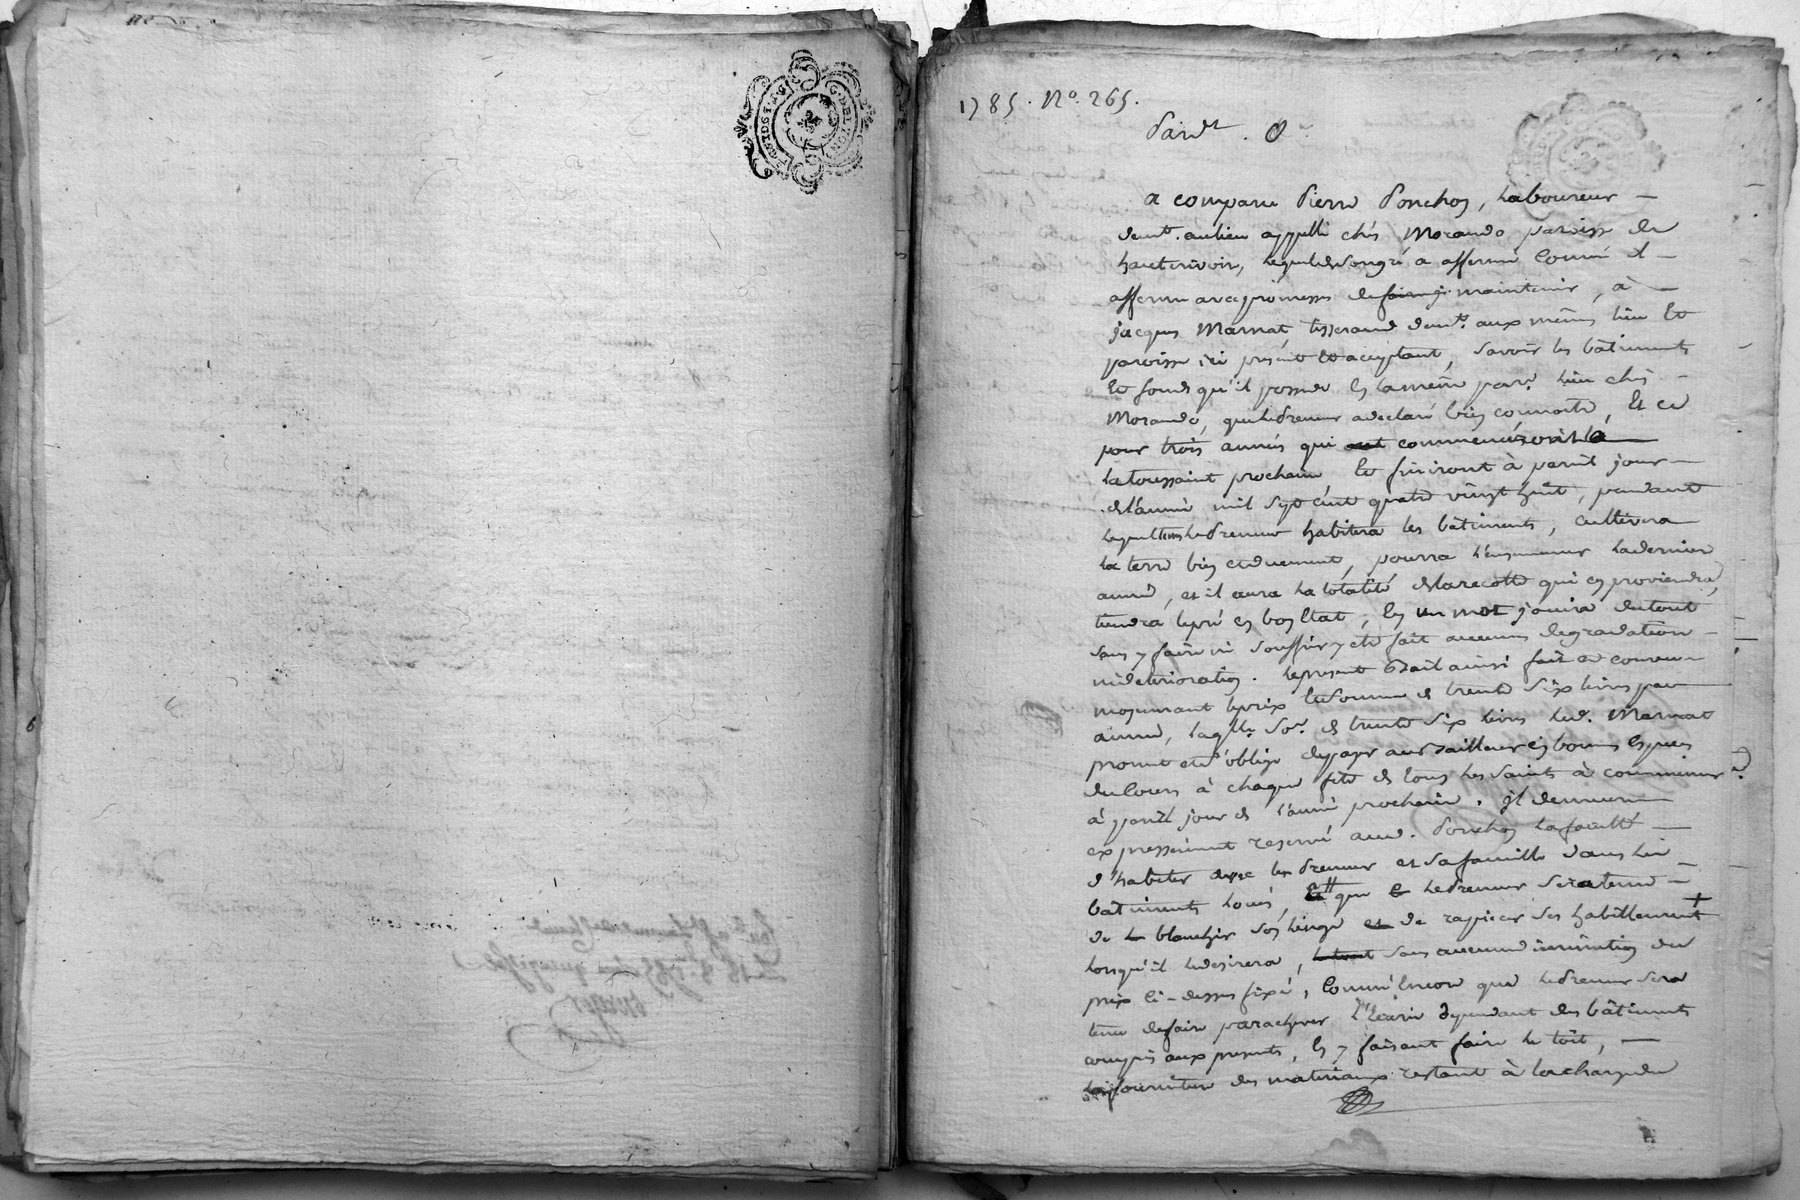 G. DE LYON
1785. No. 265.
Pardt.
a comparu Pierre Ponchon, Laboureur
demt. au lieu appellé chés Morando paroisse de
hauterivoir, lequel de son gré a affermé comme il
afferme avec promesses de maintenir, à
jacques Marnat, tisserand demt. aux mêmes lieu et
paroisse ici présent et acceptant, Savoir les bâtiments
et fonds qu'il possede en la même parr. lieu chés
Morando, que le dreneur a declaré bien connoitre, Et ce
pour trois années qui commenceront à
la toussaint prochaine et finiront à pareil jour
de l'année mil sept cent quatre vingt huit, pendant
lequel tems le dreneur habitera les bâtiments, cultivera
la terre bien et duement, pourra l'ensemencer la derniere
année, et il aura la totalité de la recolte qui en proviendra,
tiendra le pré en bon Etat, En un mot jouira du tout
sans y faire ni souffrir y etre fait aucunes degradation
ni deterioration. le present Bail ainsi fait et convenu
moyennant le prix et somme de trente six livres par
année, laqlle. So͞e. de trente six livres led. Marnat
promet et s'oblige de payer aud Bailleur en bonnes Especes
du Cours à chaque fête de tous les Saints à commencer
à pareil jour de l'année prochaine. il demeure
expressement reservé aud. Ponchon la faculté
d'habiter avec le dreneur et sa famille dans les
bâtiments loués, et que le dreneur sera tenu
de blanchir son linge et de rapiecer ses habillement +
lorsqu'il le desirera, sans aucune diminution du
prix ci-dessus fixé, Comm'encore que le dreneur sera
tenu de faire parachever l'Ecurie dependant des bâtiments
compris aux presents, En y faisant faire le toit,
la fourniture des materiaux restant à la charge du